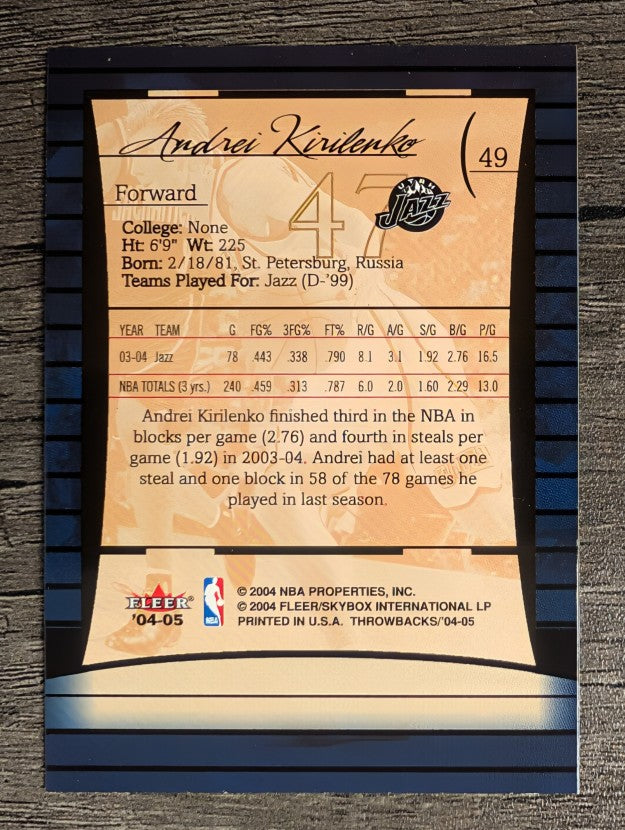 Andrei Kirilenko
49
47
UTAH
JAZZ
Forward
College: None
Ht: 6'9" Wt: 225
Born: 2/18/81, St. Petersburg, Russia
Teams Played For: Jazz (D-'99)
YEAR TEAM G FG% 3FG% FT% R/G A/G S/G B/G P/G
03-04 Jazz 78 .443 .338 .790 8.1 3.1 1.92 2.76 16.5
NBA TOTALS (3 yrs.) 240 .459 .313 .787 6.0 2.0 1.60 2.29 13.0
Andrei Kirilenko finished third in the NBA in
blocks per game (2.76) and fourth in steals per
game (1.92) in 2003-04. Andrei had at least one
steal and one block in 58 of the 78 games he
played in last season.
FLEER®
'04-05
NBA
© 2004 NBA PROPERTIES, INC.
© 2004 FLEER/SKYBOX INTERNATIONAL LP
PRINTED IN U.S.A. THROWBACKS/'04-05